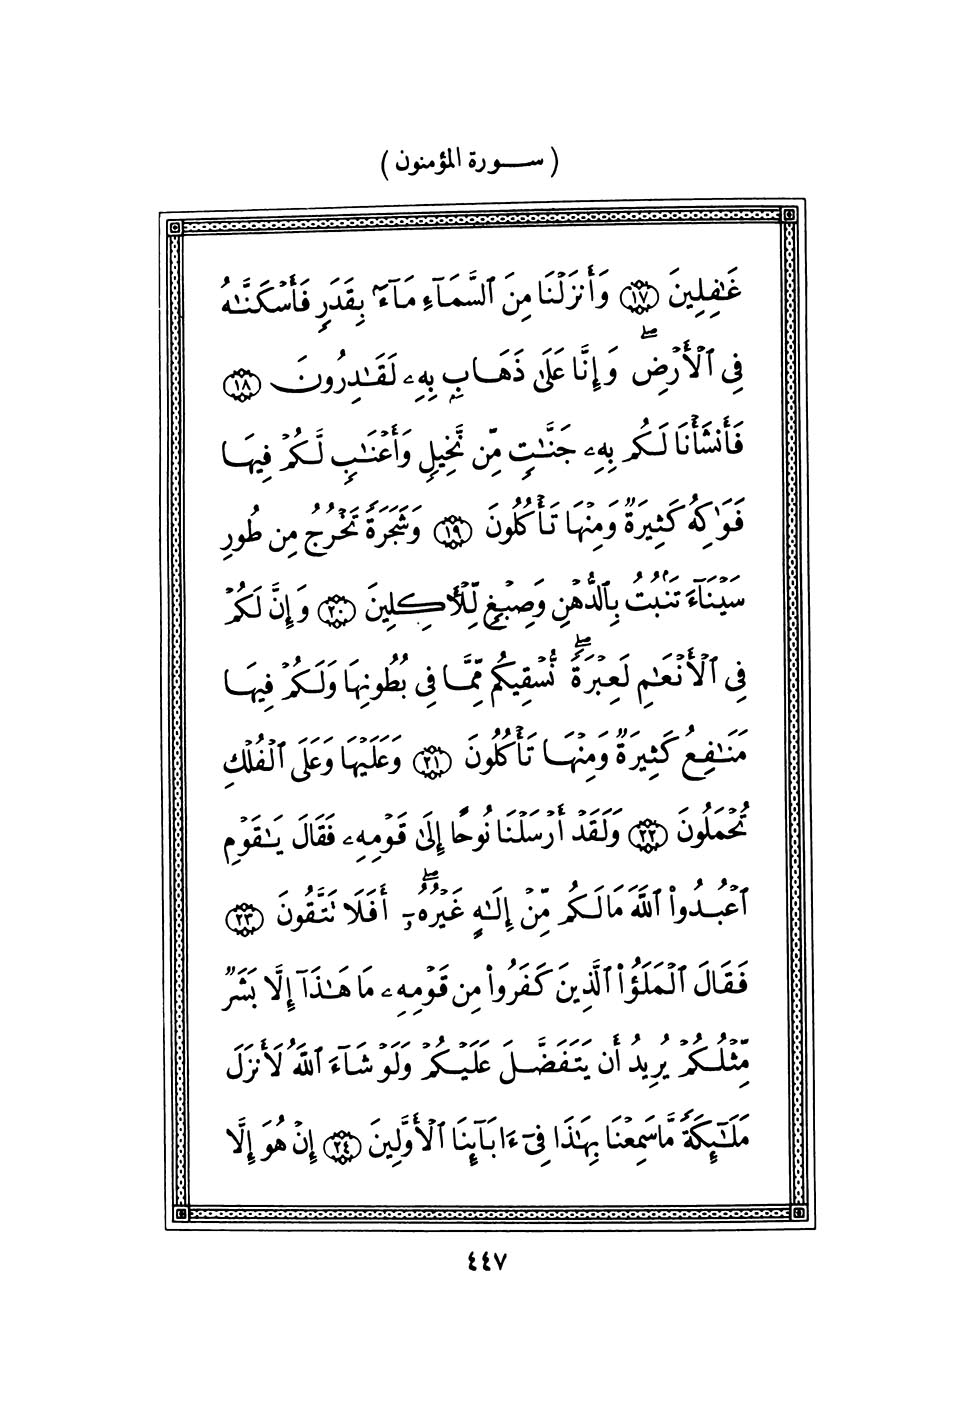 ( ســورة المؤمنون )
غَٰفِلِينَ ١٧ وَأَنزَلْنَا مِنَ ٱلسَّمَآءِ مَآءًۢ بِقَدَرٍ فَأَسْكَنَّٰهُ
فِى ٱلْأَرْضِ ۖ وَإِنَّا عَلَىٰ ذَهَابٍۭ بِهِۦ لَقَٰدِرُونَ ١٨
فَأَنشَأْنَا لَكُم بِهِۦ جَنَّٰتٍ مِّن نَّخِيلٍ وَأَعْنَٰبٍ لَّكُمْ فِيهَا
فَوَٰكِهُ كَثِيرَةٌ وَمِنْهَا تَأْكُلُونَ ١٩ وَشَجَرَةً تَخْرُجُ مِن طُورِ
سَيْنَآءَ تَنۢبُتُ بِٱلدُّهْنِ وَصِبْغٍ لِّلْأَٓكِلِينَ ٢٠ وَإِنَّ لَكُمْ
فِى ٱلْأَنْعَٰمِ لَعِبْرَةً ۖ نُّسْقِيكُم مِّمَّا فِى بُطُونِهَا وَلَكُمْ فِيهَا
مَنَٰفِعُ كَثِيرَةٌ وَمِنْهَا تَأْكُلُونَ ٢١ وَعَلَيْهَا وَعَلَى ٱلْفُلْكِ
تُحْمَلُونَ ٢٢ وَلَقَدْ أَرْسَلْنَا نُوحًا إِلَىٰ قَوْمِهِۦ فَقَالَ يَٰقَوْمِ
ٱعْبُدُوا۟ ٱللَّهَ مَا لَكُم مِّنْ إِلَٰهٍ غَيْرُهُۥٓ ۖ أَفَلَا تَتَّقُونَ ٢٣
فَقَالَ ٱلْمَلَؤُا۟ ٱلَّذِينَ كَفَرُوا۟ مِن قَوْمِهِۦ مَا هَٰذَآ إِلَّا بَشَرٌ
مِّثْلُكُمْ يُرِيدُ أَن يَتَفَضَّلَ عَلَيْكُمْ وَلَوْ شَآءَ ٱللَّهُ لَأَنزَلَ
مَلَٰٓئِكَةً مَّا سَمِعْنَا بِهَٰذَا فِىٓ ءَابَآئِنَا ٱلْأَوَّلِينَ ٢٤ إِنْ هُوَ إِلَّا
٤٤٧